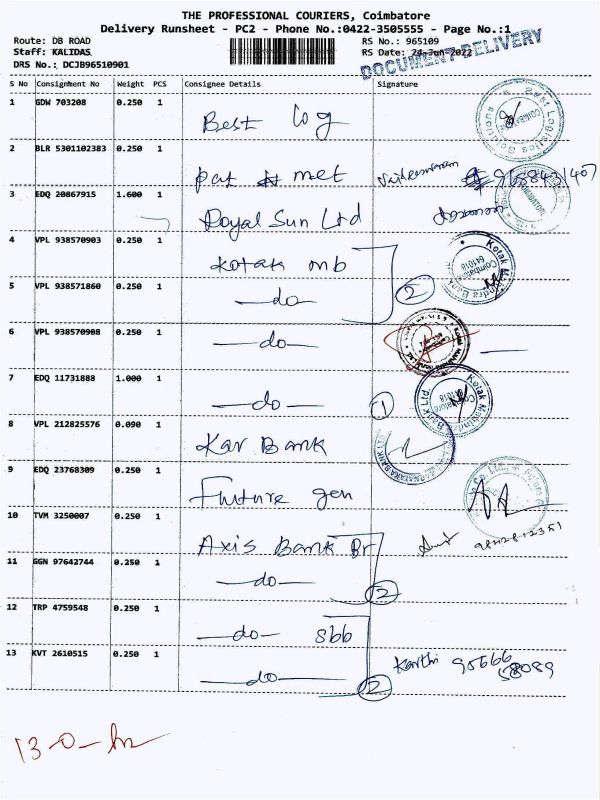 THE PROFESSIONAL COURIERS, Coimbatore
Delivery Runsheet - PC2 - Phone No.:0422-3505555 - Page No.:1
Route: DB ROAD
RS No.: 965109
Staff: KALIDAS
RS Date: 24-Jun-2022
DRS No.: DCJB96510901
DOCUMENT DELIVERY
S No Consignment No Weight PCS Consignee Details Signature
1 GDW 703208 0.250 1
Best log
2 BLR 5301102383 0.250 1
pat met
3 EDQ 20867915 1.600 1
Royal Sun Ltd
4 VPL 938570903 0.250 1
Kotak mb
5 VPL 938571860 0.250 1
—do— 2
6 VPL 938570908 0.250 1
—do—
7 EDQ 11731888 1.000 1
—do— 1
8 VPL 212825576 0.090 1
Kar Bank
9 EDQ 23768309 0.250 1
Future gen
10 TVM 3250007 0.250 1
Axis Bank Br
11 GGN 97642744 0.250 1
—do— 2
12 TRP 4759548 0.250 1
—do— sbb
13 KVT 2610515 0.250 1
—do— 2
Karthi